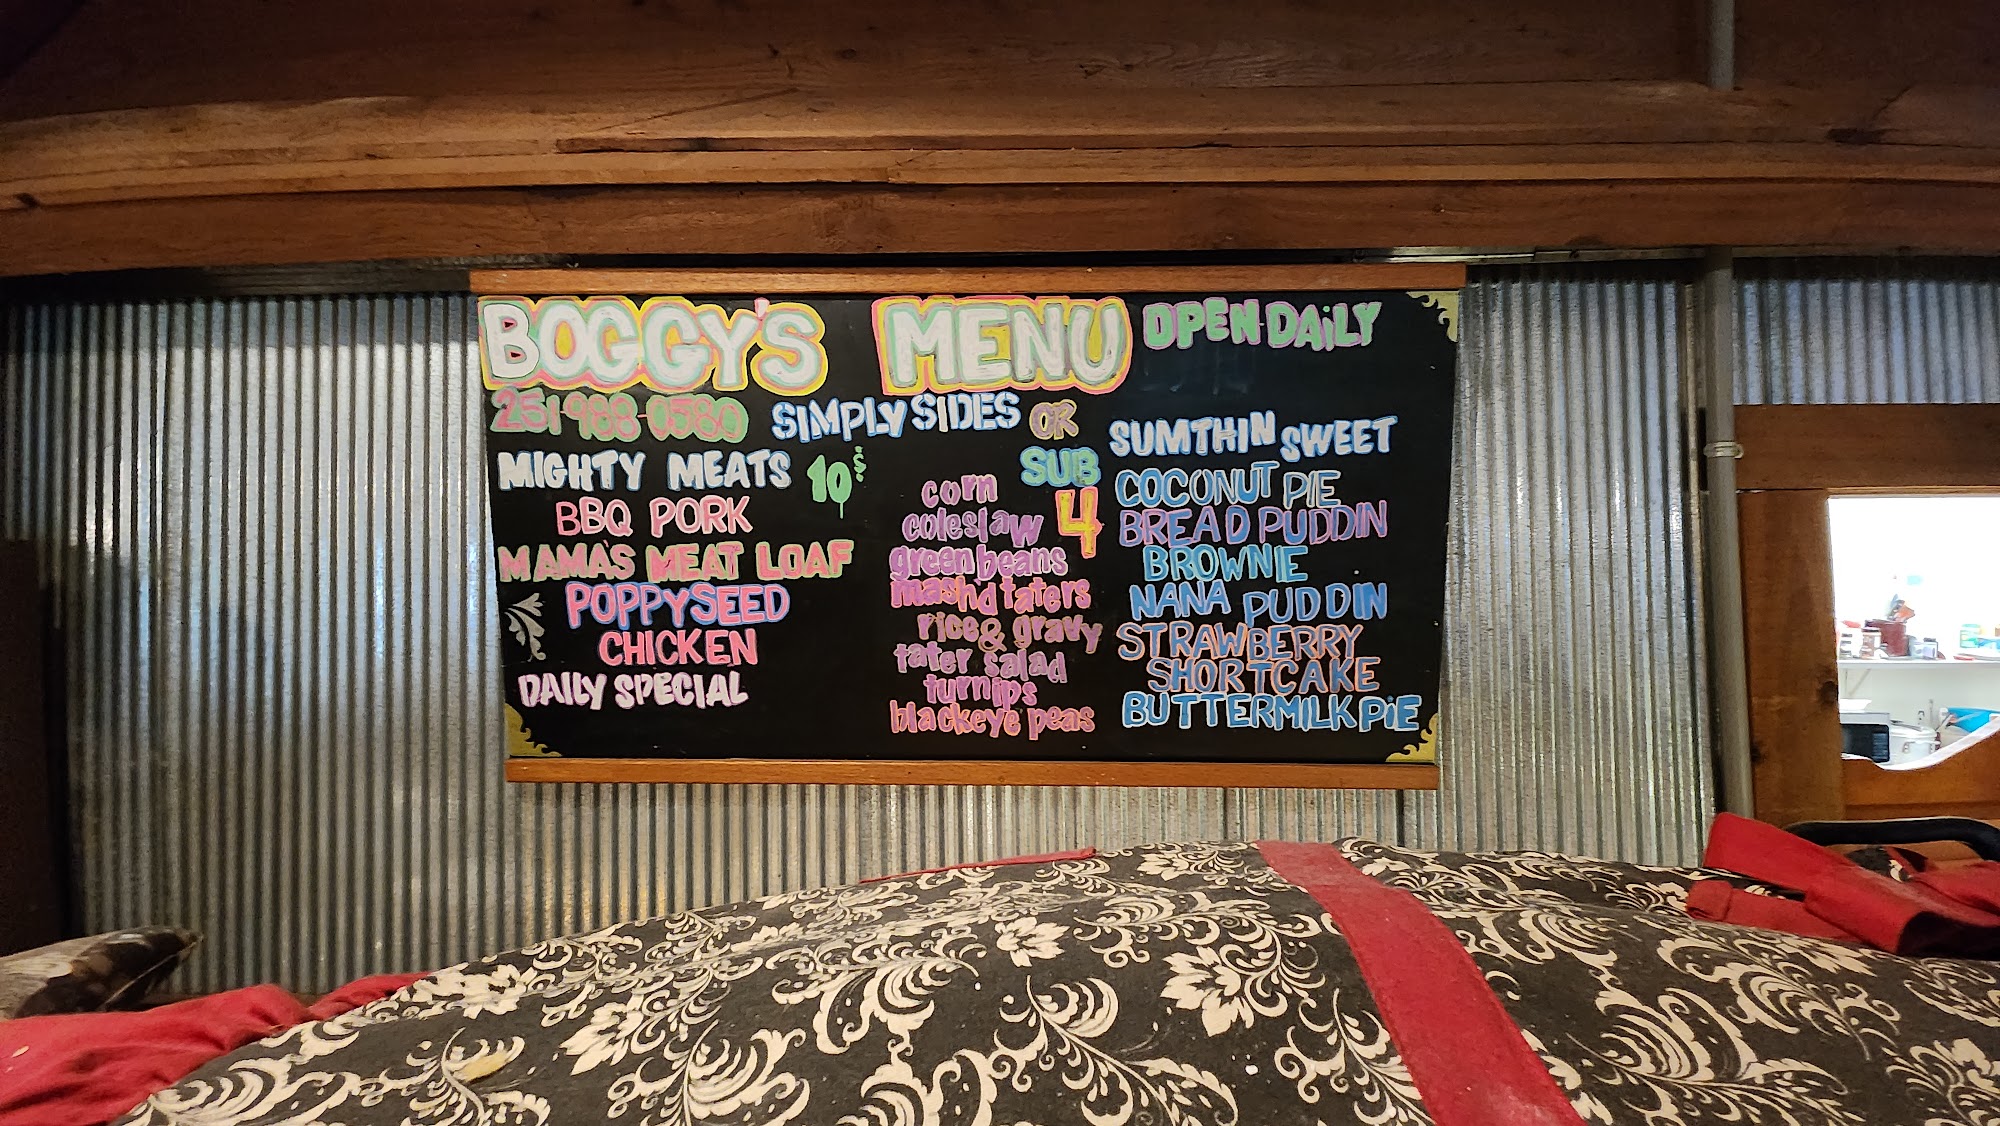 BOGGY'S MENU OPEN DAiLY
251-988-0580
MIGHTY MEATS 10$
BBQ PORK
MAMA'S MEAT LOAF
POPPYSEED
CHICKEN
DAILY SPECIAL
SIMPLY SIDES OR
SUB
4
corn
coleslaw
green beans
mash'd taters
rice & gravy
tater salad
turnips
blackeye peas
SUMTHIN SWEET
COCONUT PIE
BREAD PUDDIN
BROWNIE
NANA PUDDIN
STRAWBERRY
SHORTCAKE
BUTTERMILK PiE